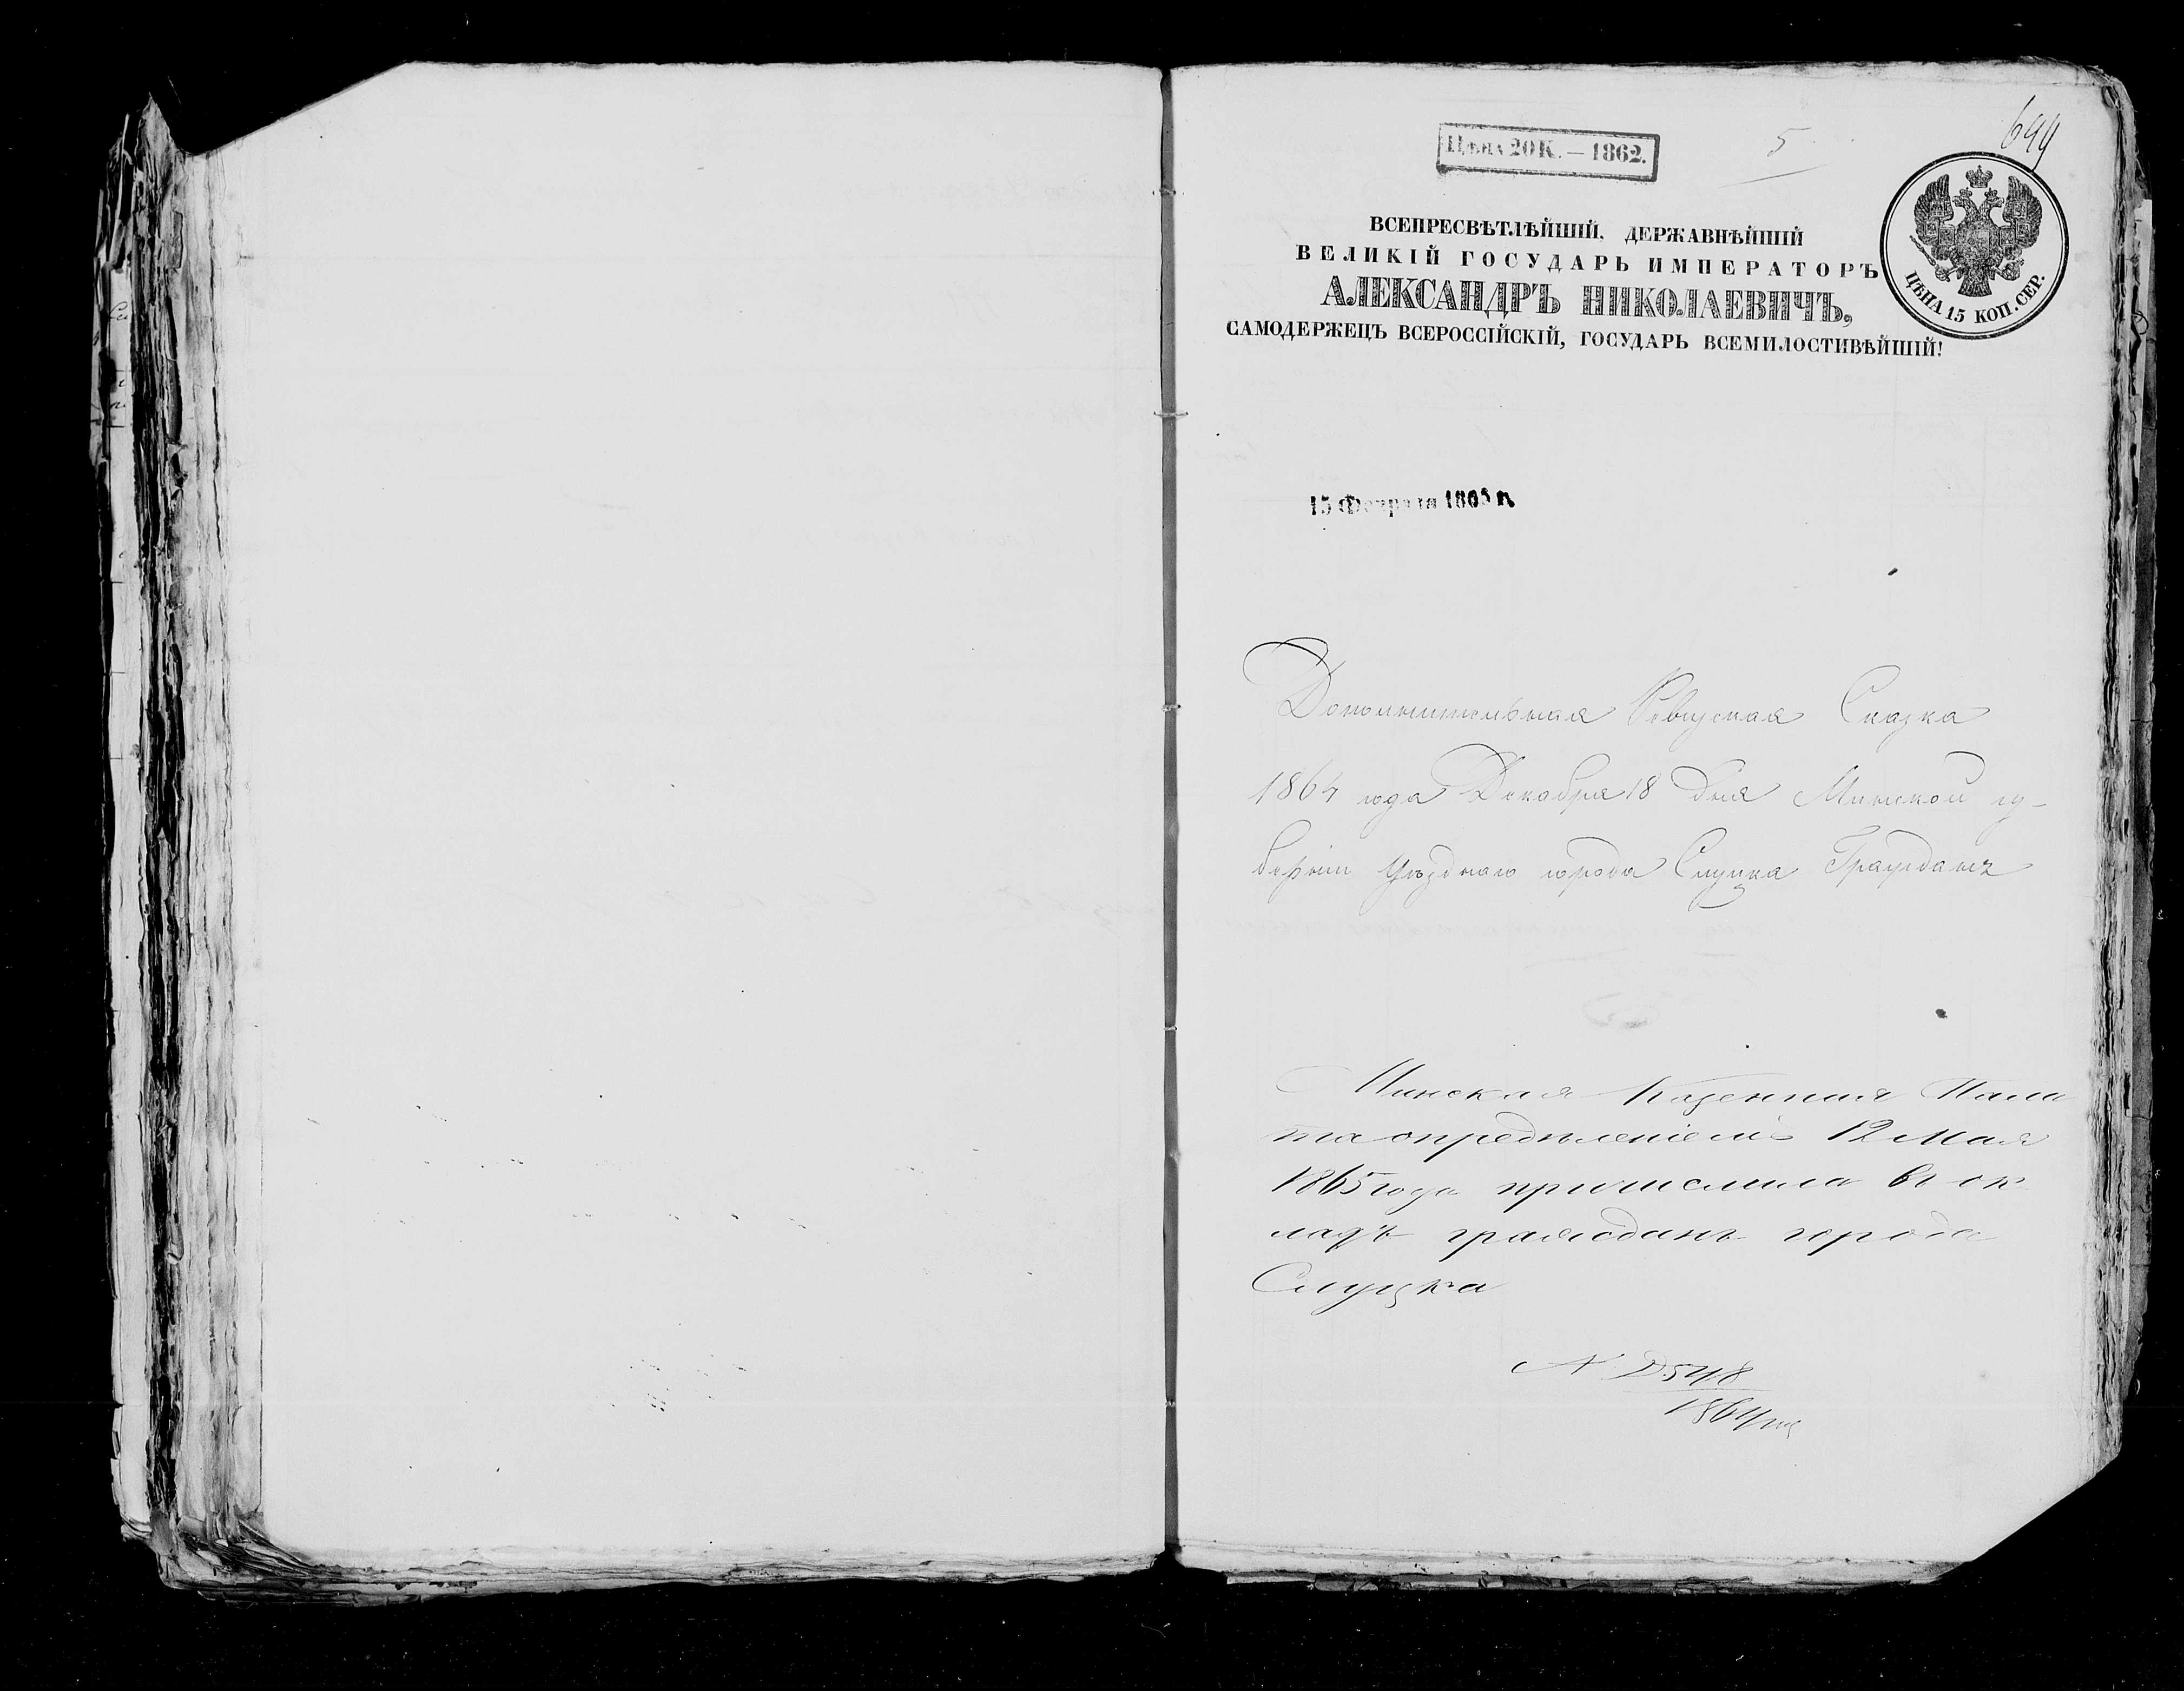 Цѣна 20 К. — 1862.
5
699
ВСЕПРЕСВѢТЛѢЙШІЙ, ДЕРЖАВНѢЙШІЙ
ВЕЛИКІЙ ГОСУДАРЬ ИМПЕРАТОРЪ
АЛЕКСАНДРЪ НИКОЛАЕВИЧЪ,
САМОДЕРЖЕЦЪ ВСЕРОССІЙСКІЙ, ГОСУДАРЬ ВСЕМИЛОСТИВѢЙШІЙ!
ЦѢНА 15 КОП. СЕР.
15 Февраля 1865 г.
Дополнительная Ревизская Сказка
1864 года Декабря 18 дня Минской гу-
берніи Уѣзднаго города Слуцка Гражданъ
Минская Казенная Пала
та опредѣленіемъ 12 Мая
1865 года причислила въ ок
ладъ гражданъ города
Слуцка
1864